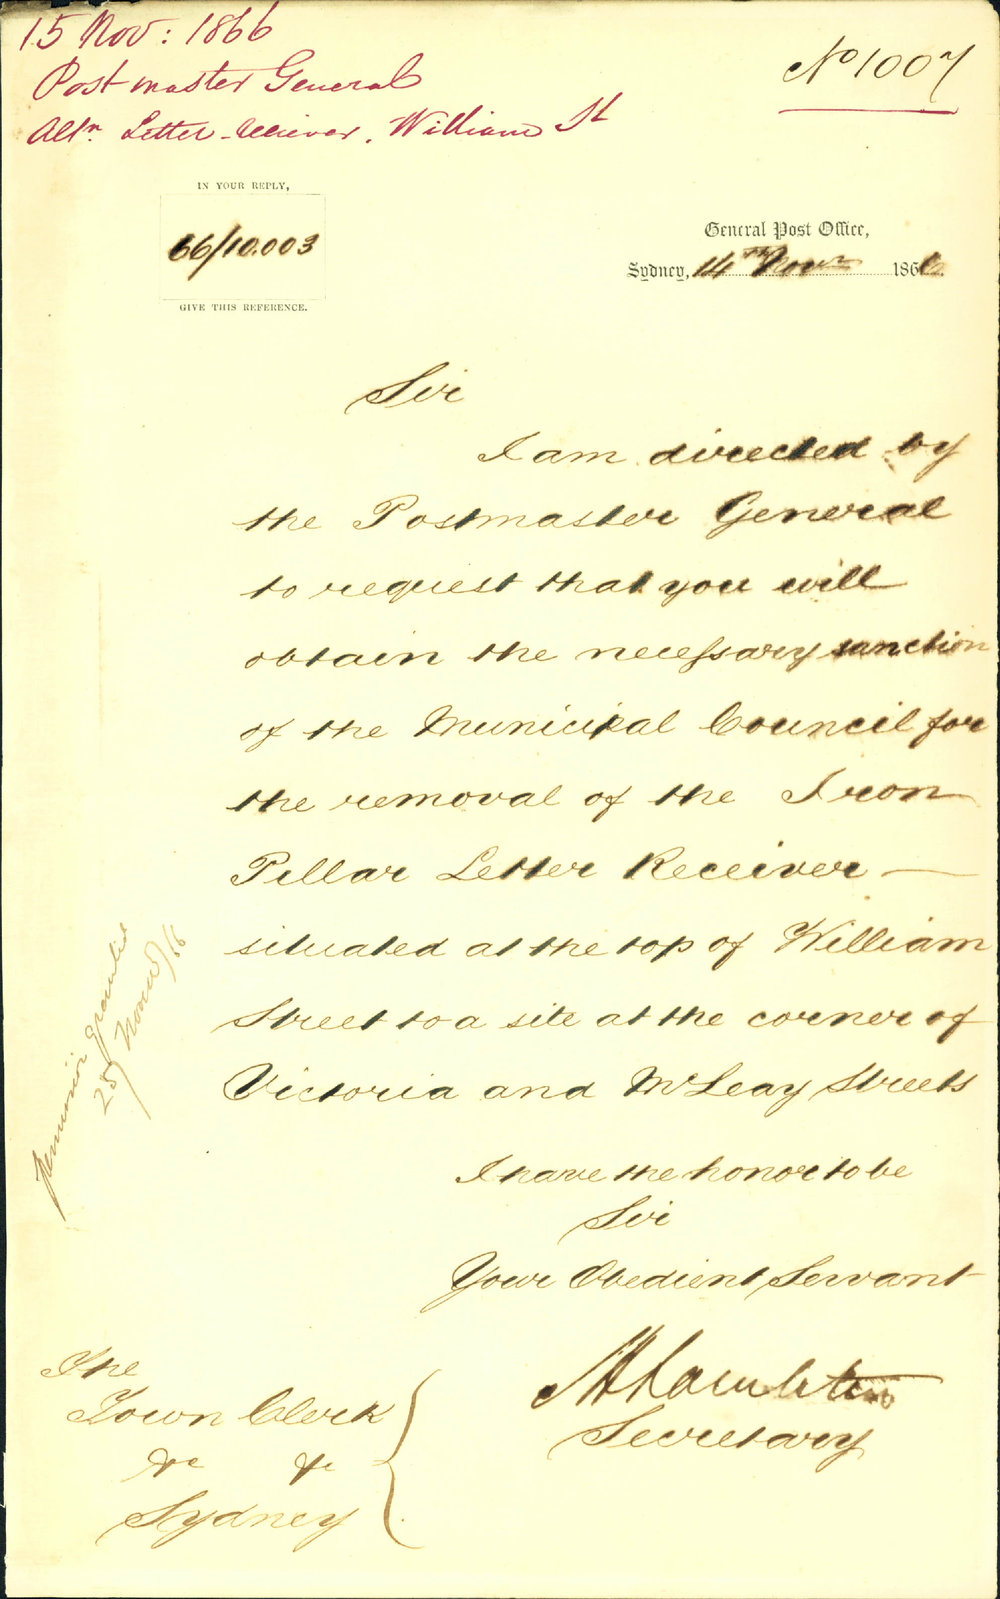 15 Nov: 1866
Postmaster General
Altn. Letter-receiver, William St
No 1007
IN YOUR REPLY,
66/10.003
GIVE THIS REFERENCE.
General Post Office,
Sydney, 14th Novr 1866
Sir
I am directed by
the Postmaster General
to request that you will
obtain the necessary sanction
of the Municipal Council for
the removal of the Iron
Pillar Letter Receiver —
situated at the top of William
Street to a site at the corner of
Victoria and McLeay Streets
I have the honor to be
Sir
Your Obedient Servant
Secretary
The
Town Clerk
&c &c
Sydney
granted